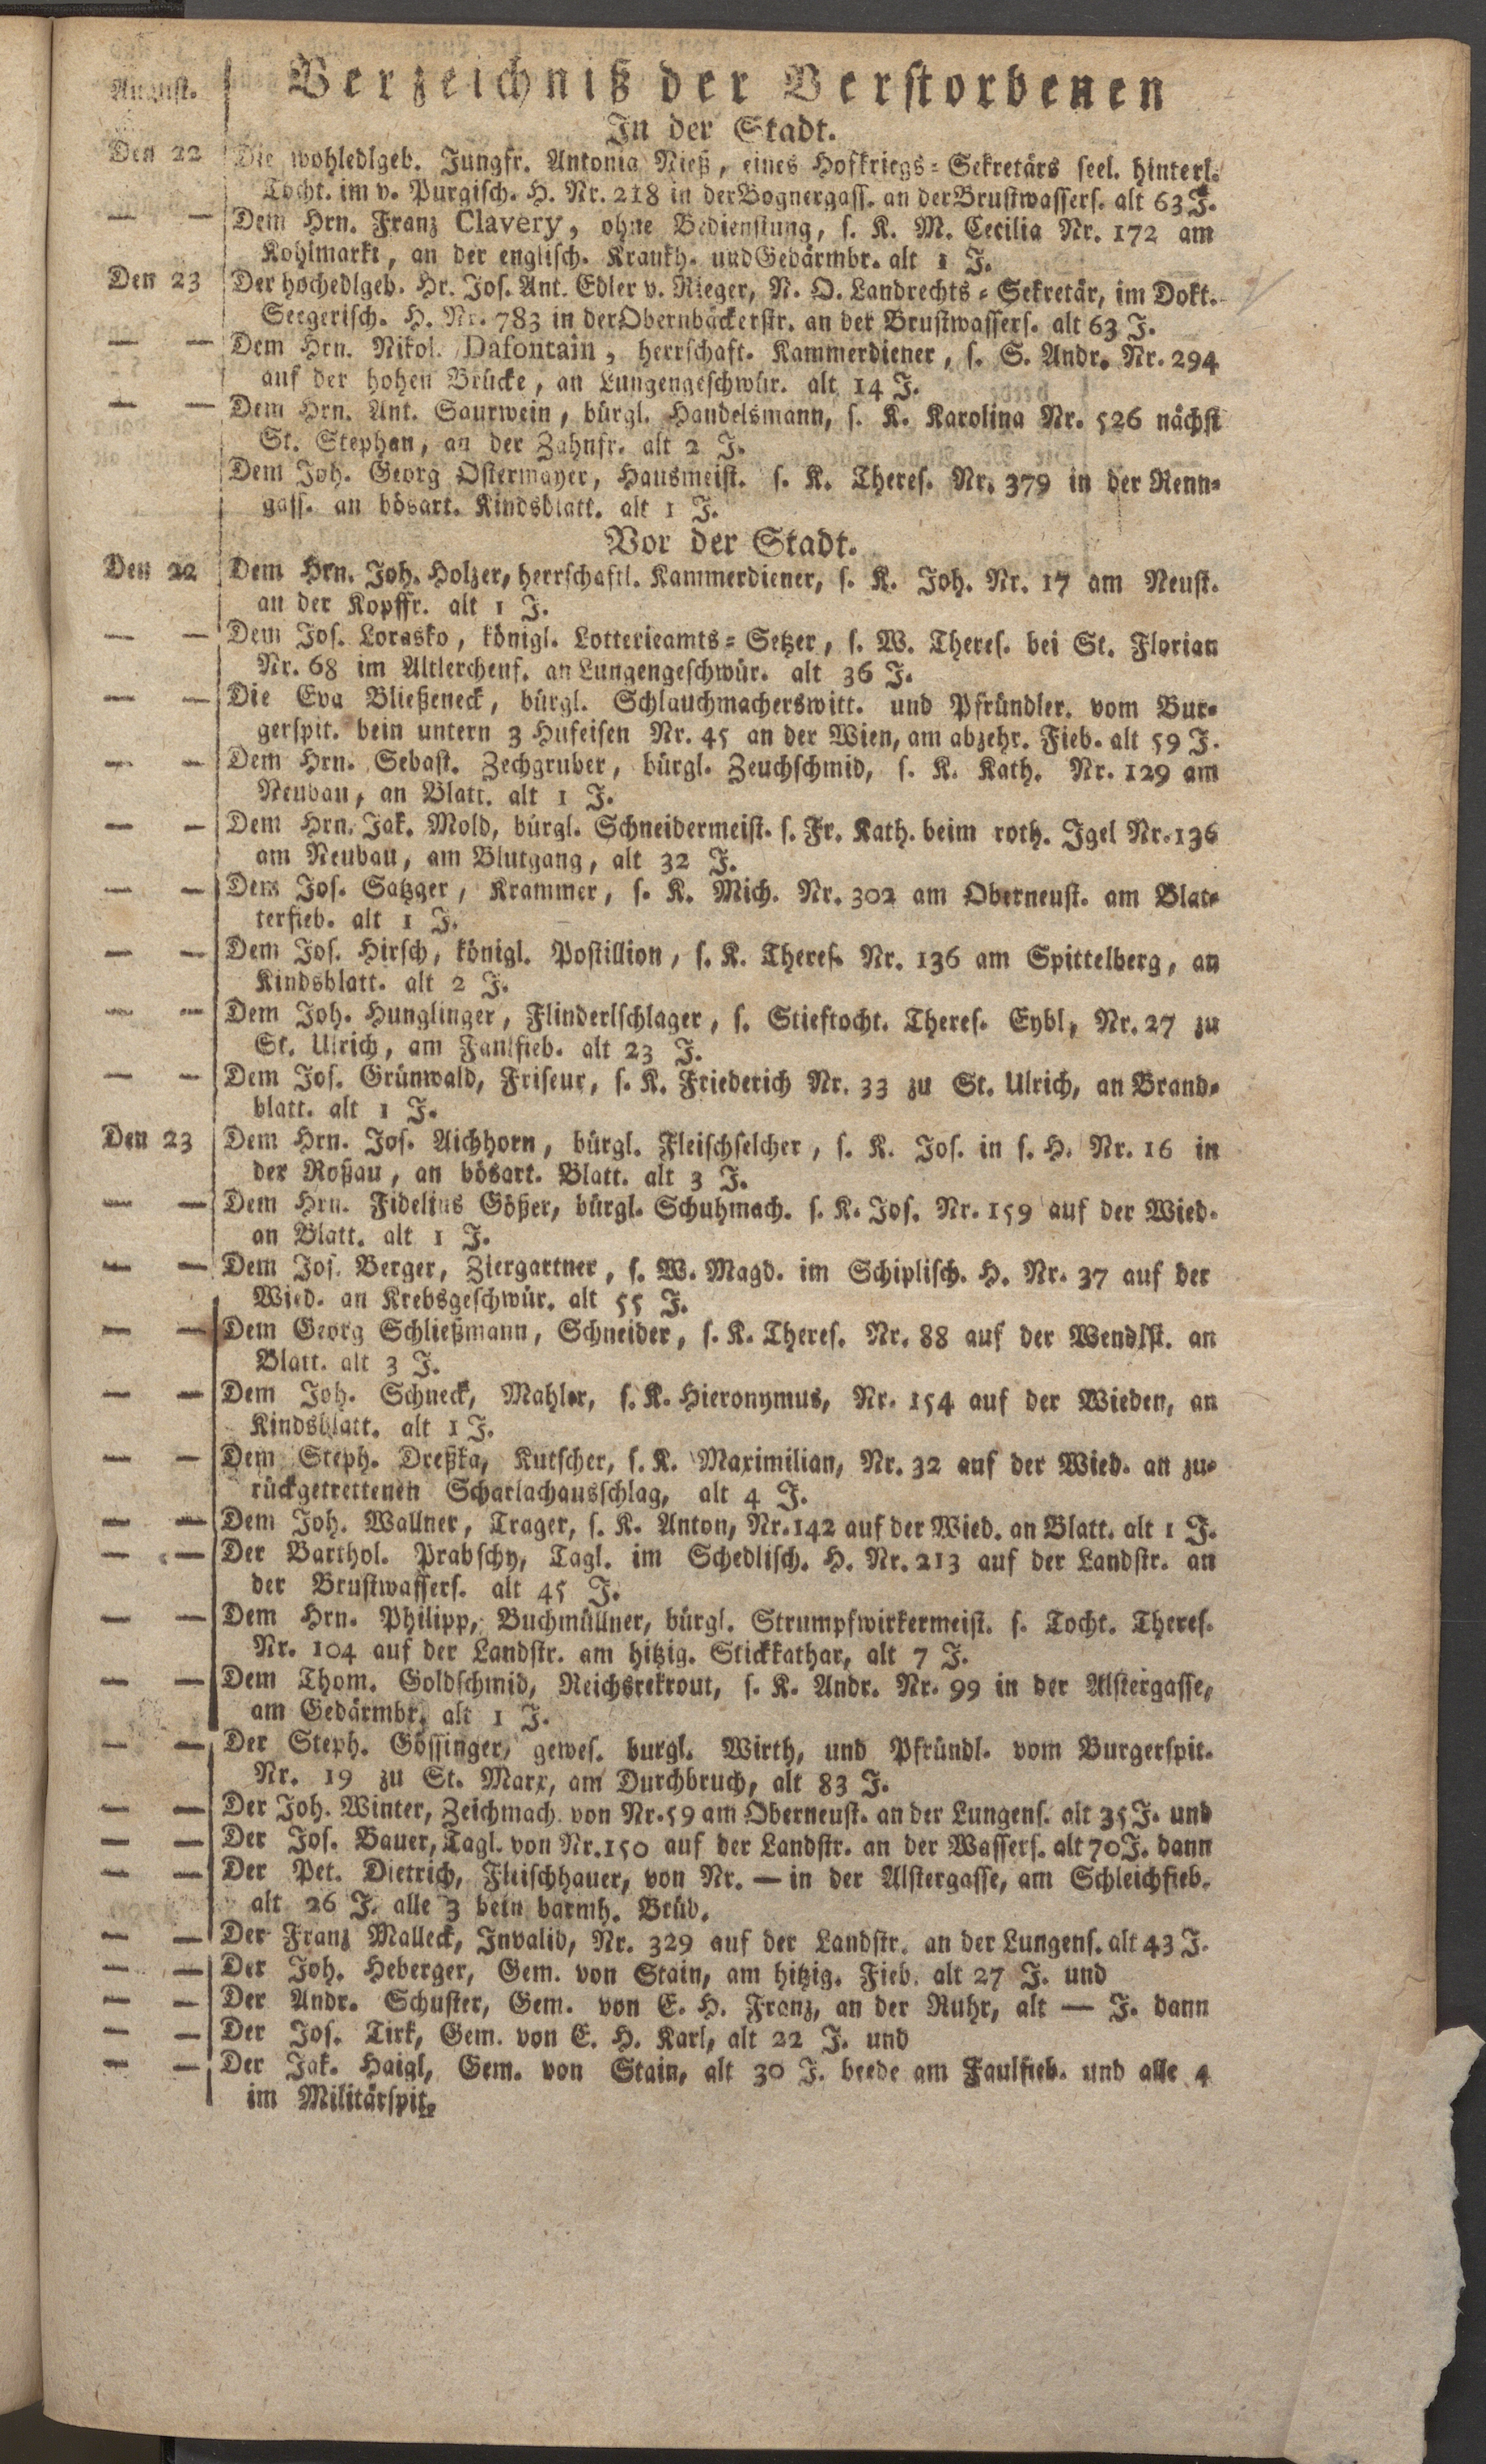 August.
Verzeichniß der Verstorbenen
In der Stadt.
Den 22 Die wohledlgeb. Jungfr. Antonia Nieß, eines Hofkriegs-Sekretärs seel. hinterl.
Tocht. im v. Purgisch. H. Nr. 218 in der Bognergass. an der Brustwassers. alt 63 J.
— — Dem Hrn. Franz Clavery, ohne Bedienstung, s. K. M. Cecilia Nr. 172 am
Kohlmarkt, an der englisch. Krankh. und Gedärmbr. alt 1 J.
Den 23 Der hochedlgeb. Hr. Jos. Ant. Edler v. Rieger, N. O. Landrechts-Sekretär, im Dokt.
Seegerisch. H. Nr. 783 in der Obernbäckerstr. an der Brustwassers. alt 63 J.
— — Dem Hrn. Nikol. Dafontain, herrschaft. Kammerdiener, s. S. Andr. Nr. 294
auf der hohen Brücke, an Lungengeschwür. alt 14 J.
— — Dem Hrn. Ant. Saurwein, bürgl. Handelsmann, s. K. Karolina Nr. 526 nächst
St. Stephan, an der Zahnfr. alt 2 J.
Dem Joh. Georg Ostermayer, Hausmeist. s. K. Theres. Nr. 379 in der Renn-
gass. an bösart. Kindsblatt. alt 1 J.
Vor der Stadt.
Den 22 Dem Hrn. Joh. Holzer, herrschaftl. Kammerdiener, s. K. Joh. Nr. 17 am Neust.
an der Kopffr. alt 1 J.
— — Dem Jos. Lorasko, königl. Lotterieamts-Setzer, s. W. Theres. bei St. Florian
Nr. 68 im Altlerchenf. an Lungengeschwür. alt 36 J.
— — Die Eva Bließeneck, bürgl. Schlauchmacherswitt. und Pfründler. vom Bur-
gerspit. bein untern 3 Hufeisen Nr. 45 an der Wien, am abzehr. Fieb. alt 59 J.
— — Dem Hrn. Sebast. Zechgruber, bürgl. Zeuchschmid, s. K. Kath. Nr. 129 am
Neubau, an Blatt. alt 1 J.
— — Dem Hrn. Jak. Mold, bürgl. Schneidermeist. s. Fr. Kath. beim roth. Igel Nr. 136
am Neubau, am Blutgang, alt 32 J.
— — Dem Jos. Satzger, Krammer, s. K. Mich. Nr. 302 am Oberneust. am Blat-
terfieb. alt 1 J.
— — Dem Jos. Hirsch, königl. Postillion, s. K. Theres. Nr. 136 am Spittelberg, an
Kindsblatt. alt 2 J.
— — Dem Joh. Hunglinger, Flinderlschlager, s. Stieftocht. Theres. Eybl, Nr. 27 zu
St. Ulrich, am Faulfieb. alt 23 J.
— — Dem Jos. Grünwald, Friseur, s. K. Friederich Nr. 33 zu St. Ulrich, an Brand-
blatt. alt 1 J.
Den 23 Dem Hrn. Jos. Aichhorn, bürgl. Fleischselcher, s. K. Jos. in s. H. Nr. 16 in
der Roßau, an bösart. Blatt. alt 3 J.
— — Dem Hrn. Fidelius Gößer, bürgl. Schuhmach. s. K. Jos. Nr. 159 auf der Wied.
an Blatt. alt 1 J.
— — Dem Jos. Berger, Ziergartner, s. W. Magd. im Schiplisch. H. Nr. 37 auf der
Wied. an Krebsgeschwür. alt 55 J.
— — Dem Georg Schließmann, Schneider, s. K. Theres. Nr. 88 auf der Wendlst. an
Blatt. alt 3 J.
— — Dem Joh. Schneck, Mahler, s. K. Hieronymus, Nr. 154 auf der Wieden, an
Kindsblatt. alt 1 J.
— — Dem Steph. Dreßka, Kutscher, s. K. Maximilian, Nr. 32 auf der Wied. an zu-
rückgetrettenen Scharlachausschlag, alt 4 J.
— — Dem Joh. Wallner, Trager, s. K. Anton, Nr. 142 auf der Wied. an Blatt. alt 1 J.
— — Der Barthol. Prabschy, Tagl. im Schedlisch. H. Nr. 213 auf der Landstr. an
der Brustwassers. alt 45 J.
— — Dem Hrn. Philipp, Buchmüllner, bürgl. Strumpfwirkermeist. s. Tocht. Theres.
Nr. 104 auf der Landstr. am hitzig. Stickkathar, alt 7 J.
— — Dem Thom. Goldschmid, Reichsrekrout, s. K. Andr. Nr. 99 in der Alstergasse,
am Gedärmbr. alt 1 J.
— — Der Steph. Gössinger, gewes. burgl. Wirth, und Pfründl. vom Burgerspit.
Nr. 19 zu St. Marx, am Durchbruch, alt 83 J.
— — Der Joh. Winter, Zeichmach. von Nr. 59 am Oberneust. an der Lungens. alt 35 J. und
— — Der Jos. Bauer, Tagl. von Nr. 150 auf der Landstr. an der Wassers. alt 70 J. dann
— — Der Pet. Dietrich, Fleischhauer, von Nr. — in der Alstergasse, am Schleichfieb.
alt 26 J. alle 3 bein barmh. Brüd.
— — Der Franz Malleck, Invalid, Nr. 329 auf der Landstr. an der Lungens. alt 43 J.
— — Der Joh. Heberger, Gem. von Stain, am hitzig. Fieb. alt 27 J. und
— — Der Andr. Schuster, Gem. von E. H. Franz, an der Ruhr, alt — J. dann
— — Der Jos. Tirk, Gem. von E. H. Karl, alt 22 J. und
— — Der Jak. Haigl, Gem. von Stain, alt 30 J. beede am Faulfieb. und alle 4
im Militärspit.